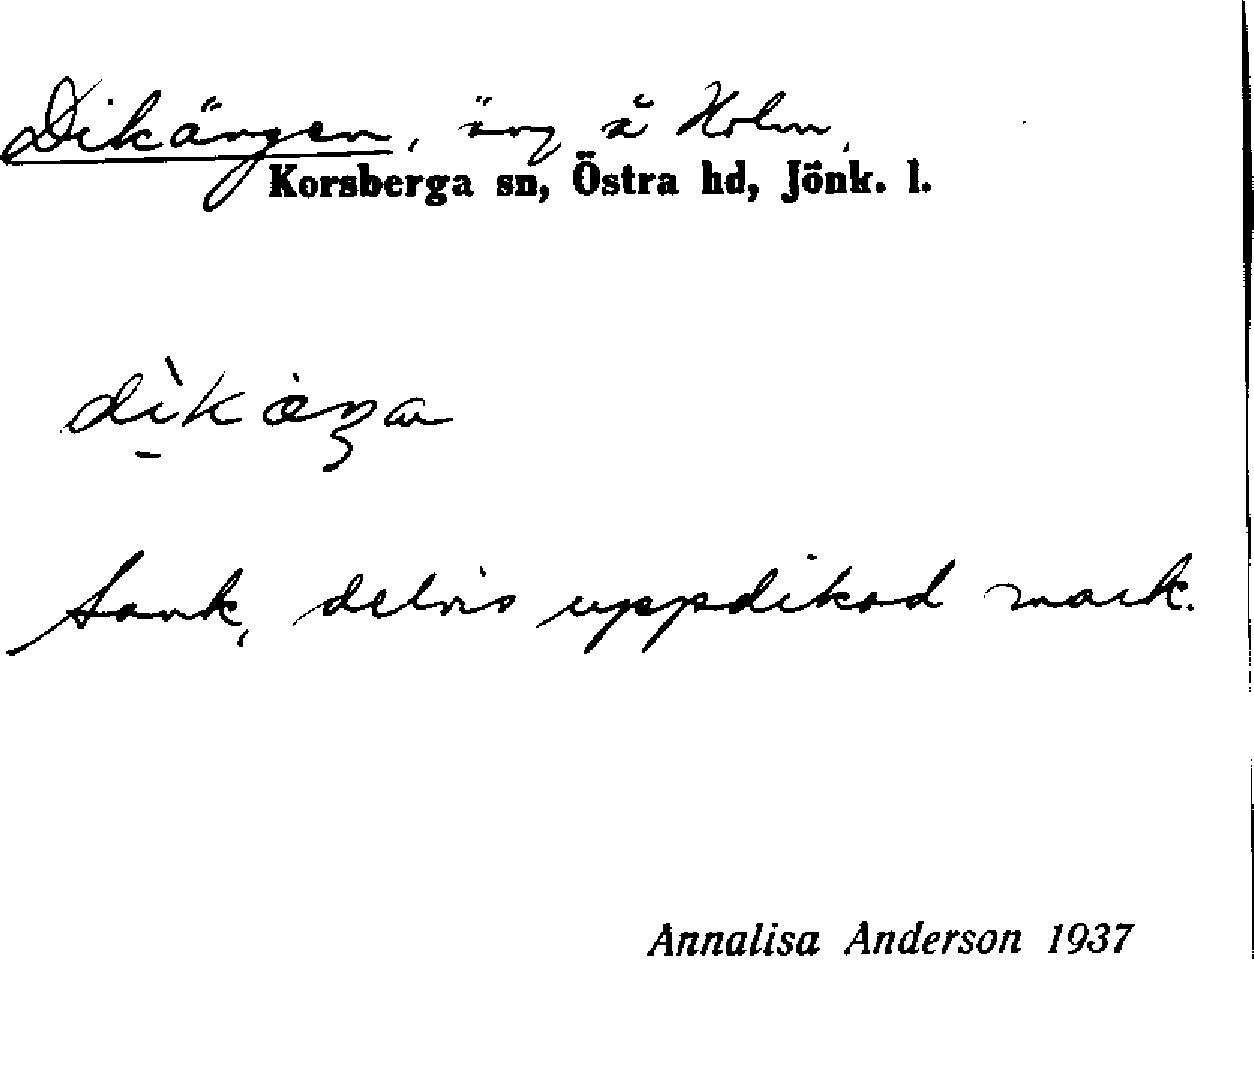 Dikängen, äng å Holm,
Korsberga sn, Östra hd, Jönk. l.
Sank, delvis uppdikad mark.
Annalisa Anderson 1937